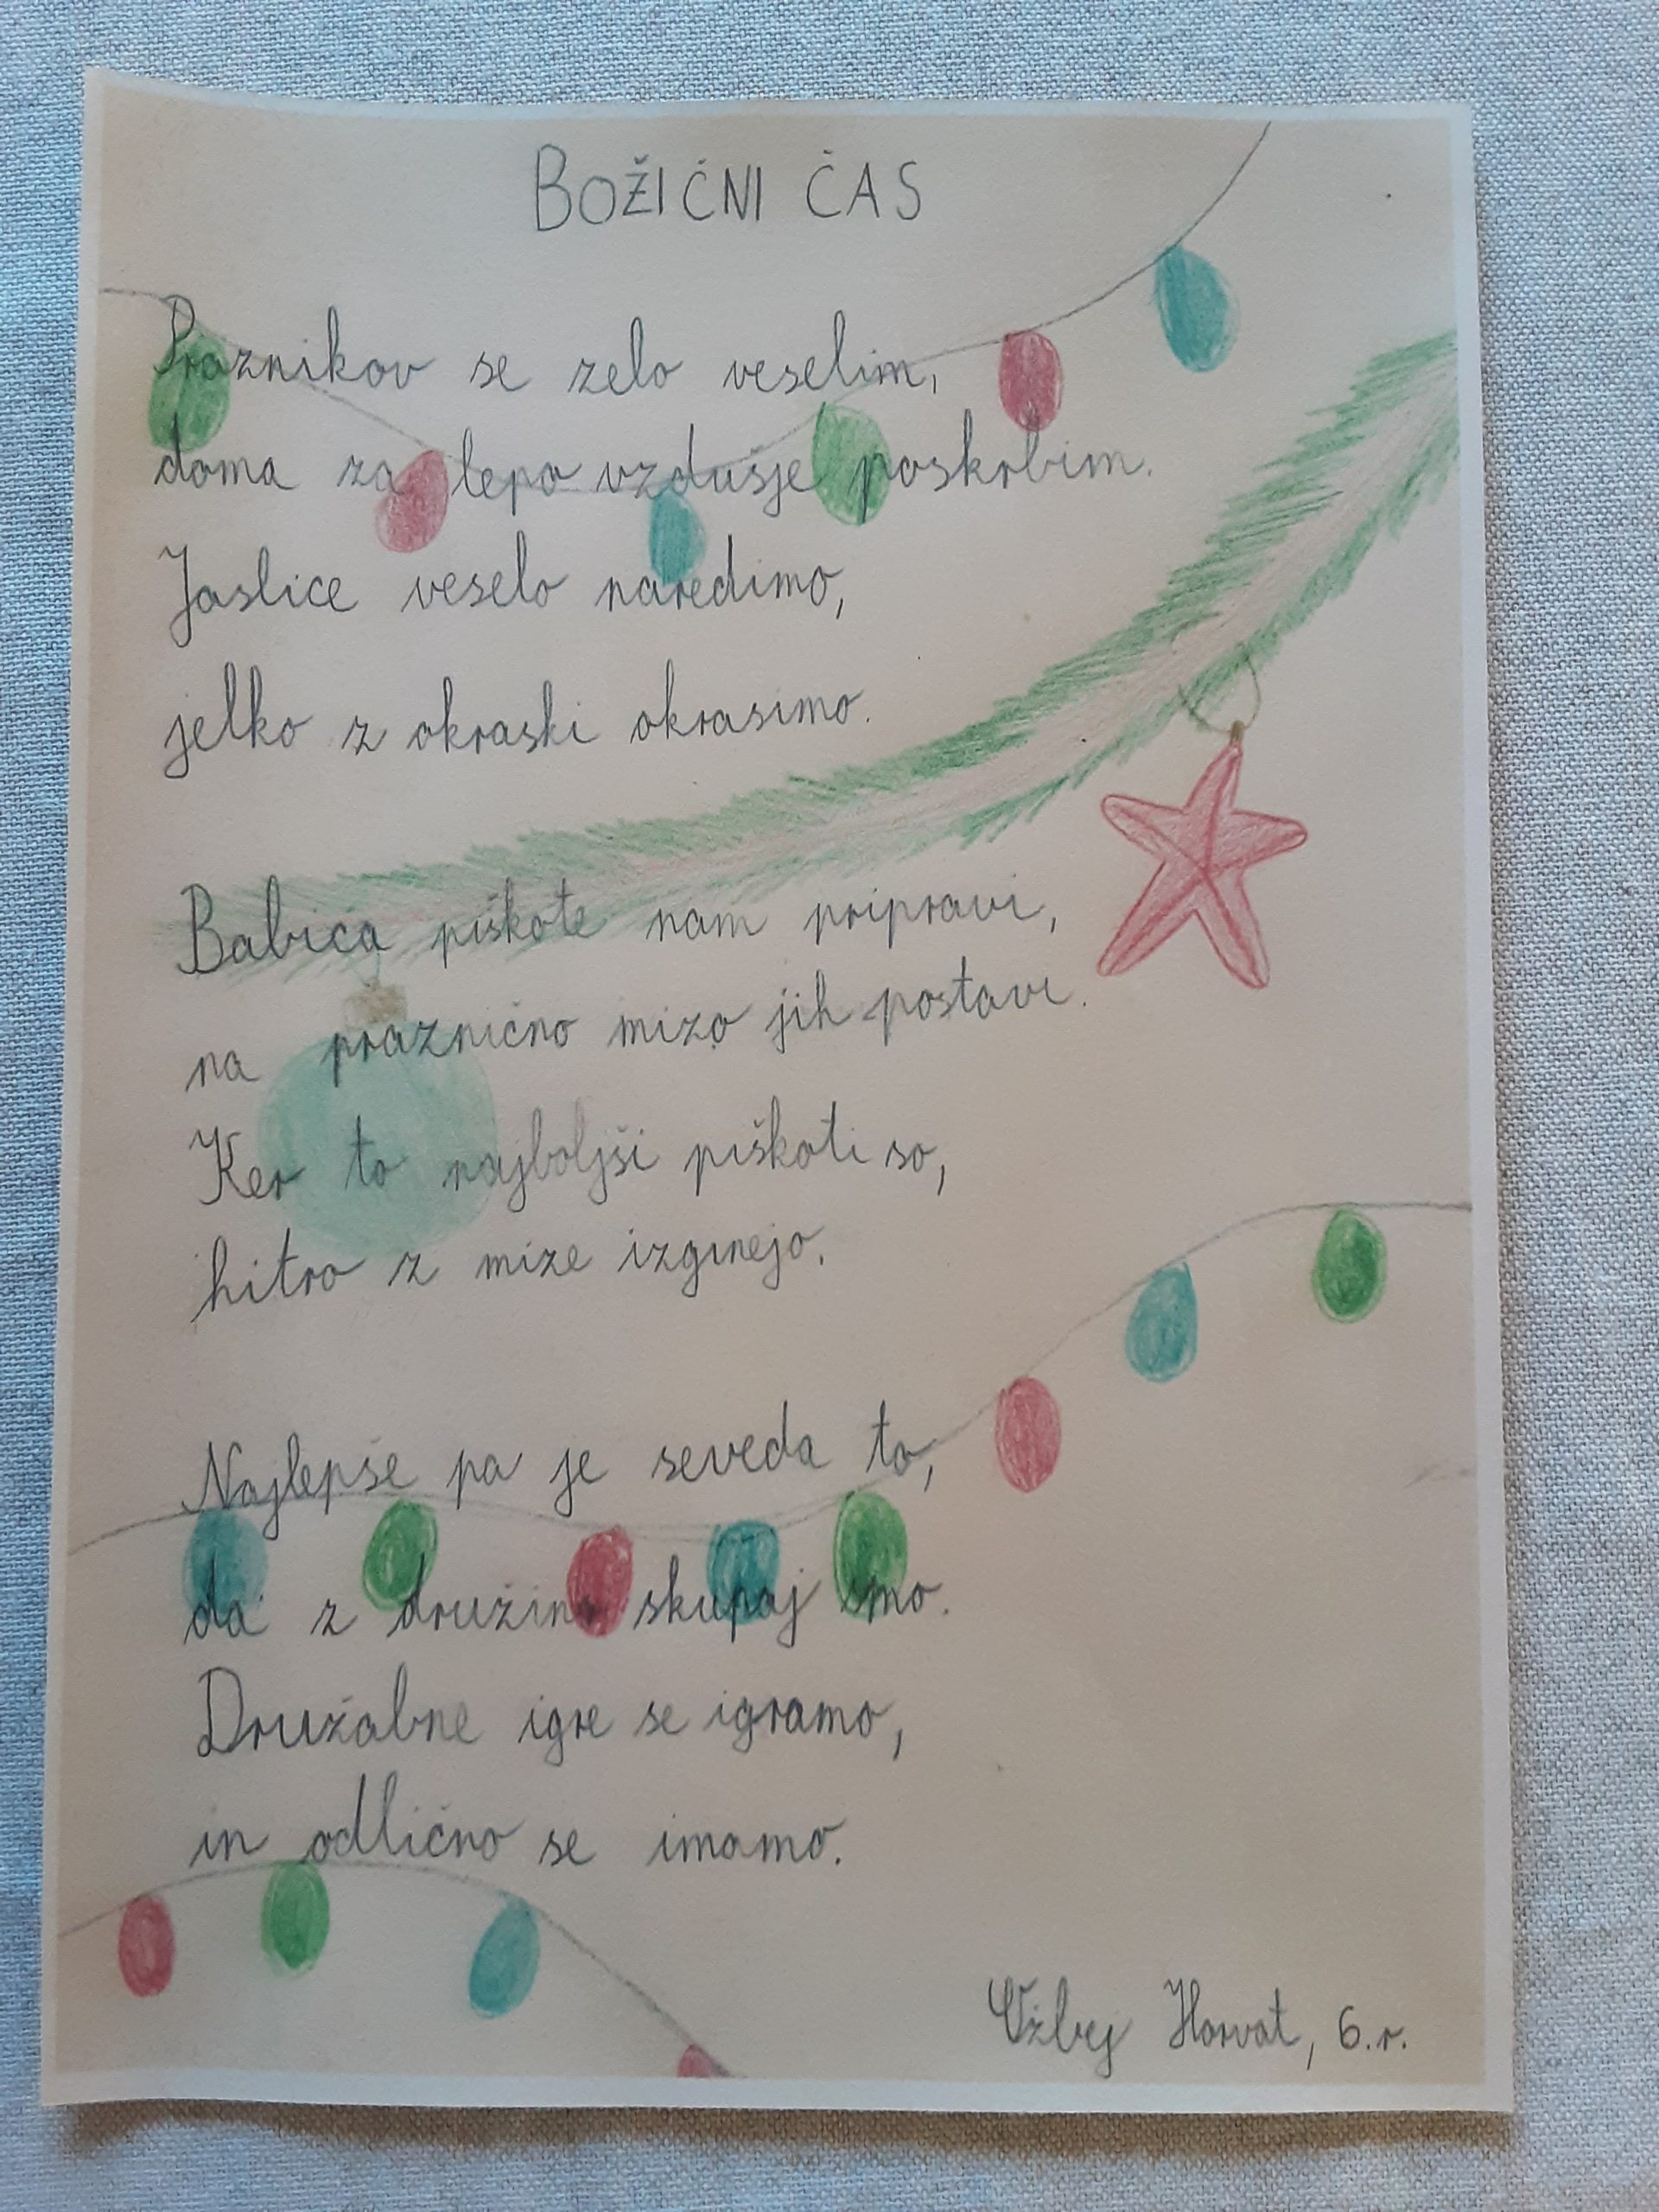 BOŽIČNI ČAS
Praznikov se zelo veselim,
doma za lepo vzdušje poskrbim.
Jaslice veselo naredimo,
jelko z okraski okrasimo.
Babica piškote nam pripravi,
na praznično mizo jih postavi.
Ker to najboljši piškoti so,
hitro z mize izginejo.
Najlepše pa je seveda to,
da z družino skupaj smo.
Družabne igre se igramo,
in odlično se imamo.
Ožbej Horvat, 6.r.